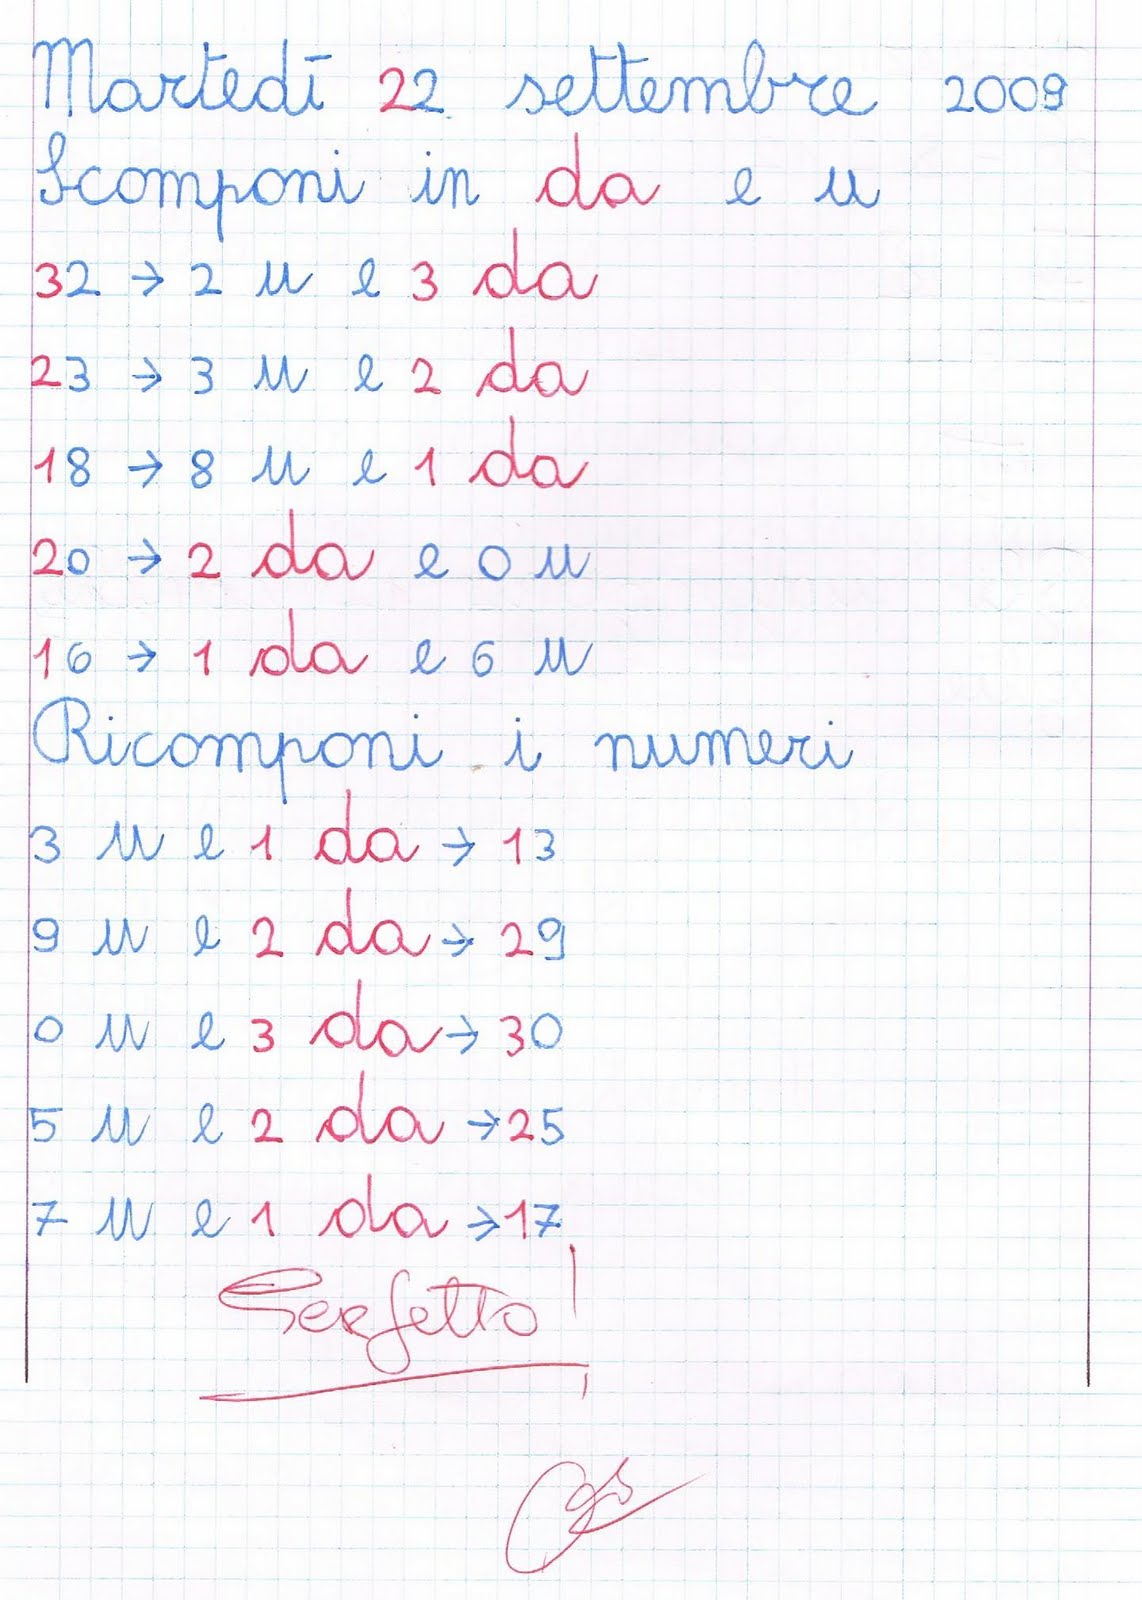 Martedī 22 settembre 2009
Scomponi in da e u
32 → 2 u e 3 da
23 → 3 u e 2 da
18 → 8 u e 1 da
20 → 2 da e 0 u
16 → 1 da e 6 u
Ricomponi i numeri
3 u e 1 da → 13
9 u e 2 da → 29
0 u e 3 da → 30
5 u e 2 da → 25
7 u e 1 da → 17
Perfetto!